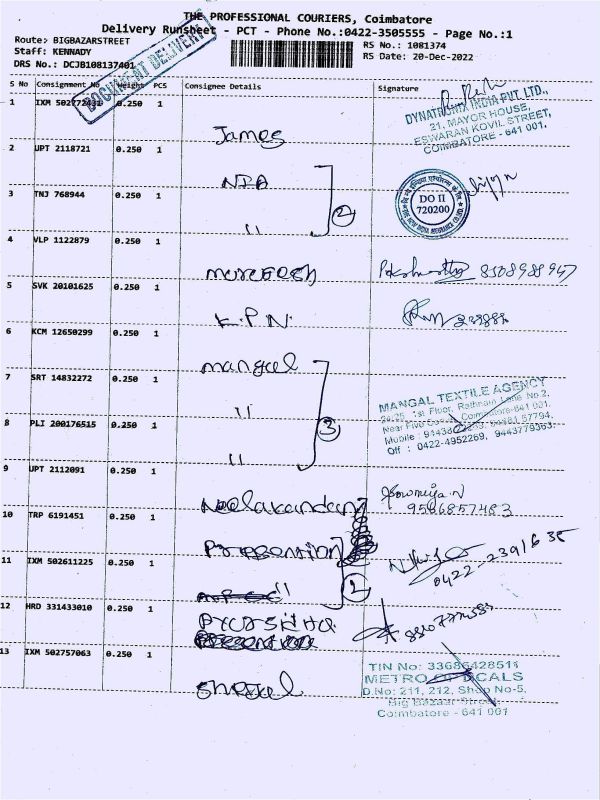 THE PROFESSIONAL COURIERS, Coimbatore
Delivery Runsheet - PCT - Phone No.:0422-3505555 - Page No.:1
Route:> BIGBAZARSTREET
RS No.: 1081374
Staff: KENNADY
RS Date: 20-Dec-2022
DRS No.: DCJB108137401
DOCUMENT DELIVERY
S No Consignment No Weight PCS Consignee Details Signature
1 IXM 502772431 0.250 1
James
DYNATRONIX INDIA PVT LTD.,
21, MAYOR HOUSE,
ESWARAN KOVIL STREET,
COIMBATORE - 641 001.
2 UPT 2118721 0.250 1
NIA
DO II
720200
3 TNJ 768944 0.250 1
"
2
4 VLP 1122879 0.250 1
murugesh
5 SVK 20101625 0.250 1
K.P.N.
6 KCM 12650299 0.250 1
mangal
7 SRT 14832272 0.250 1
"
MANGAL TEXTILE AGENCY
1st Floor,
Coimbatore-641 001.
Off : 0422-4952269, 9443779363.
8 PLI 200176515 0.250 1
"
3
9 UPT 2112091 0.250 1
Neelakandan
Sowmiya.N
9566857483
10 TRP 6191451 0.250 1
11 IXM 502611225 0.250 1
"
2
0422-2391635
12 HRD 331433010 0.250 1
13 IXM 502757063 0.250 1
TIN No: 33686428511
METRO
D.No: 211, 212, Shop No-5,
Big Bazaar Street,
Coimbatore - 641 001